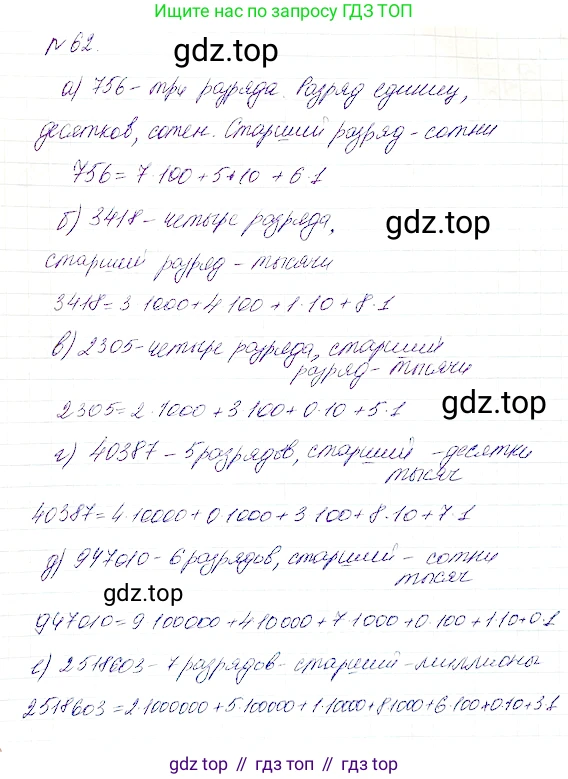 Ищите нас по запросу ГДЗ ТОП
№ 62.
gdz.top
а) 756 - три разряда. Разряд единиц,
десятков, сотен. Старший разряд - сотни
756 = 7·100 + 5·10 + 6·1
б) 3418 - четыре разряда,
gdz.top
старший разряд - тысячи
3418 = 3·1000 + 4·100 + 1·10 + 8·1
в) 2305 - четыре разряда, старший
разряд - тысячи
2305 = 2·1000 + 3·100 + 0·10 + 5·1
gdz.top
г) 40387 - 5 разрядов, старший - десятки
тысяч
40387 = 4·10000 + 0·1000 + 3·100 + 8·10 + 7·1
д) 947010 - 6 разрядов, старший - сотни
тысяч
gdz.top
947010 = 9·100000 + 4·10000 + 7·1000 + 0·100 + 1·10 + 0·1
е) 2518603 - 7 разрядов - старший - миллионы
2518603 = 2·1000000 + 5·100000 + 1·10000 + 8·1000 + 6·100 + 0·10 + 3·1
gdz.top // гдз топ // гдз.top